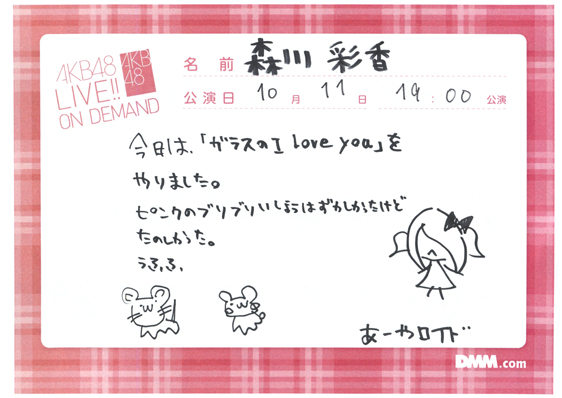 AKB48
LIVE!!
ON DEMAND
AKB
48
名前 森川 彩香
公演日 10月 11日 19:00 公演
今日は、「ガラスの I love you」を
やりました。
ピンクのブリブリいしょうはずかしかったけど
たのしかった。
うふふ、
あーやロイド
DMM.com